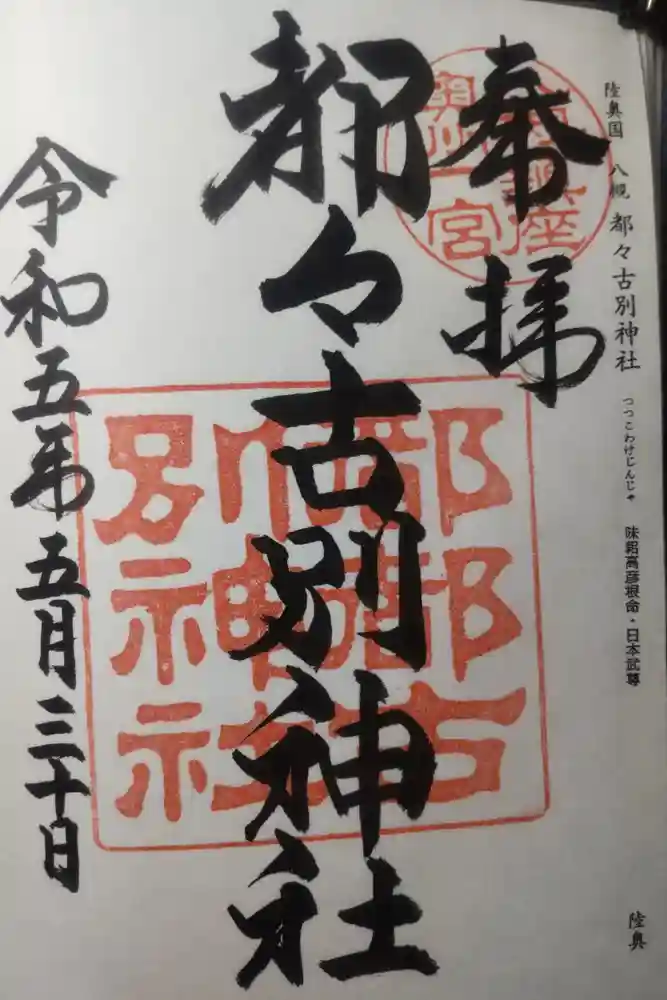 陸奥国 八槻 都々古別神社 つつこわけじんじゃ 味耜高彦根命・日本武尊
陸奥
奉拝
奥州一宮
都々古別神社
都都古
別神社
令和五年五月三十日